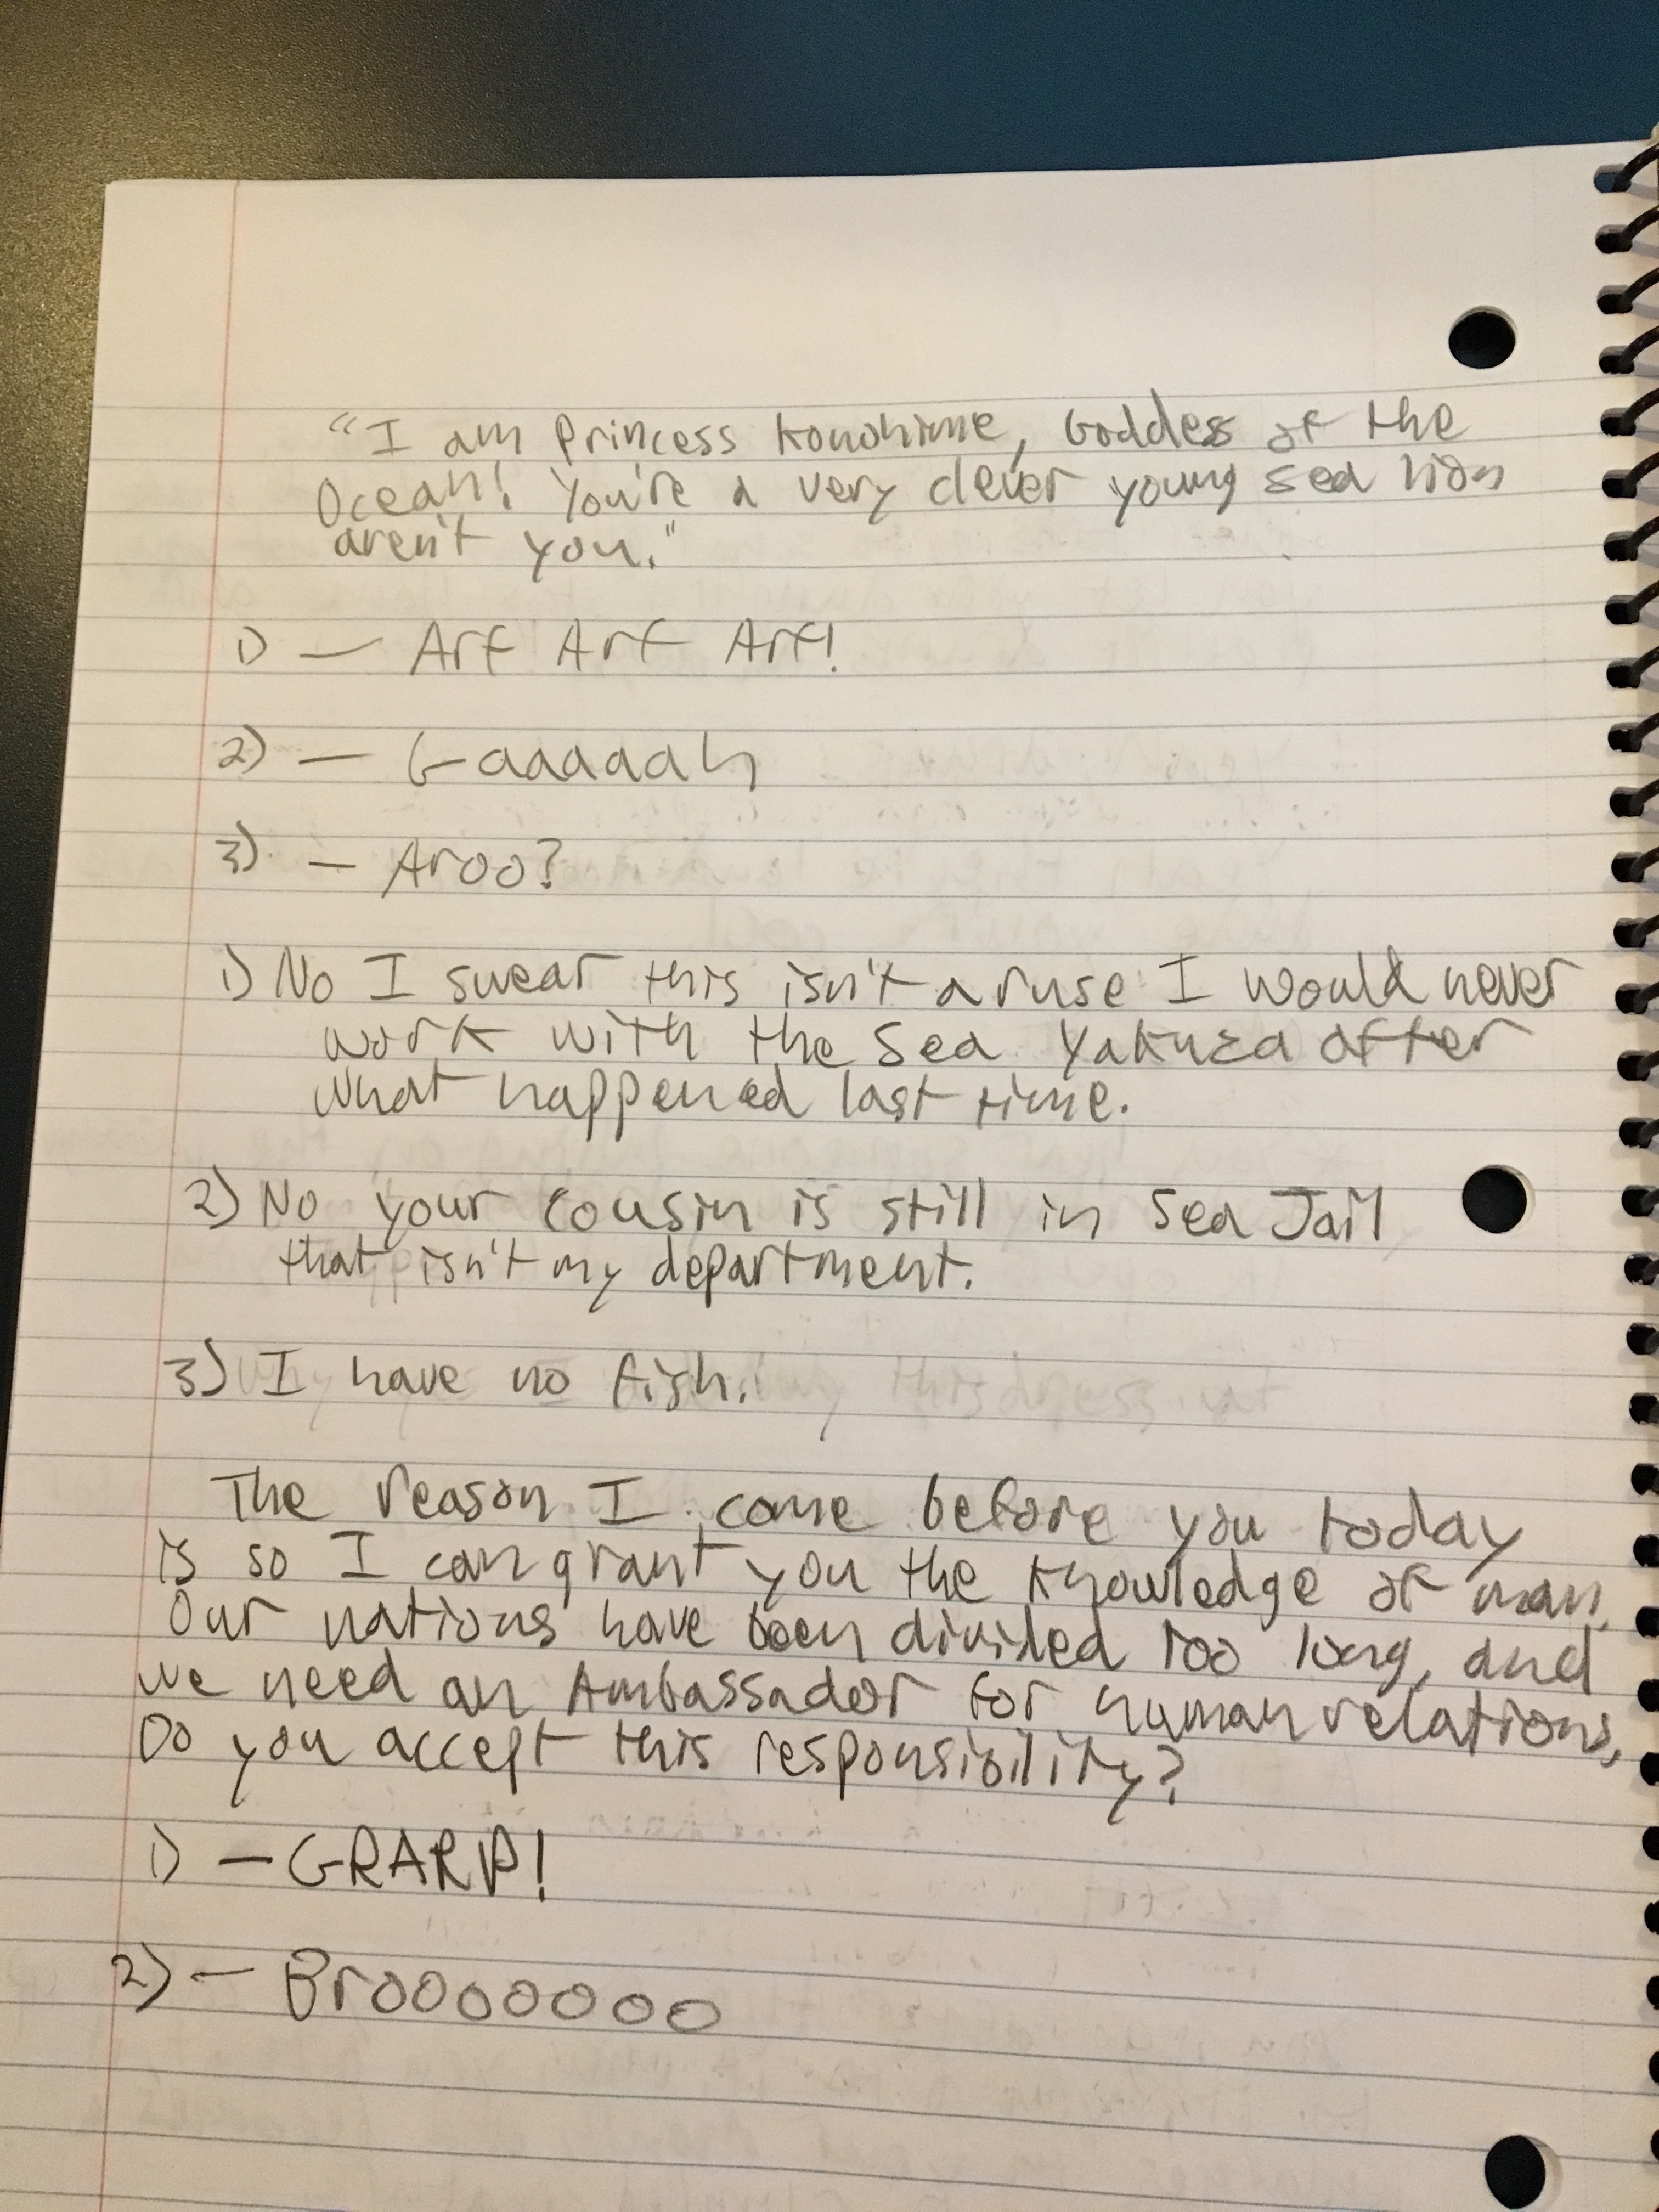 "I am Princess Konohime, Goddess of the
Ocean! You're a very clever young sea lion
aren't you."
1) — Arf Arf Arf!
2) — Gaaaaah
3) — Aroo?
1) No I swear this isn't a ruse I would never
work with the Sea Yakuza after
what happened last time.
2) No your cousin is still in Sea Jail
that isn't my department.
3) I have no fish.
The reason I come before you today
is so I can grant you the knowledge of man.
Our nations have been divided too long, and
we need an Ambassador for human relations.
Do you accept this responsibility?
1) — GRARP!
2) — Brooooooo